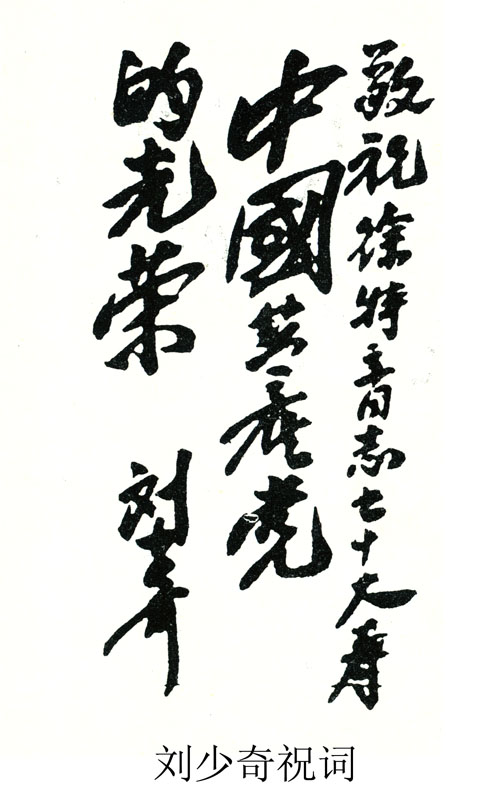 敬祝徐特立同志七十大寿
中國共產党
的光荣
刘少奇
刘少奇祝词